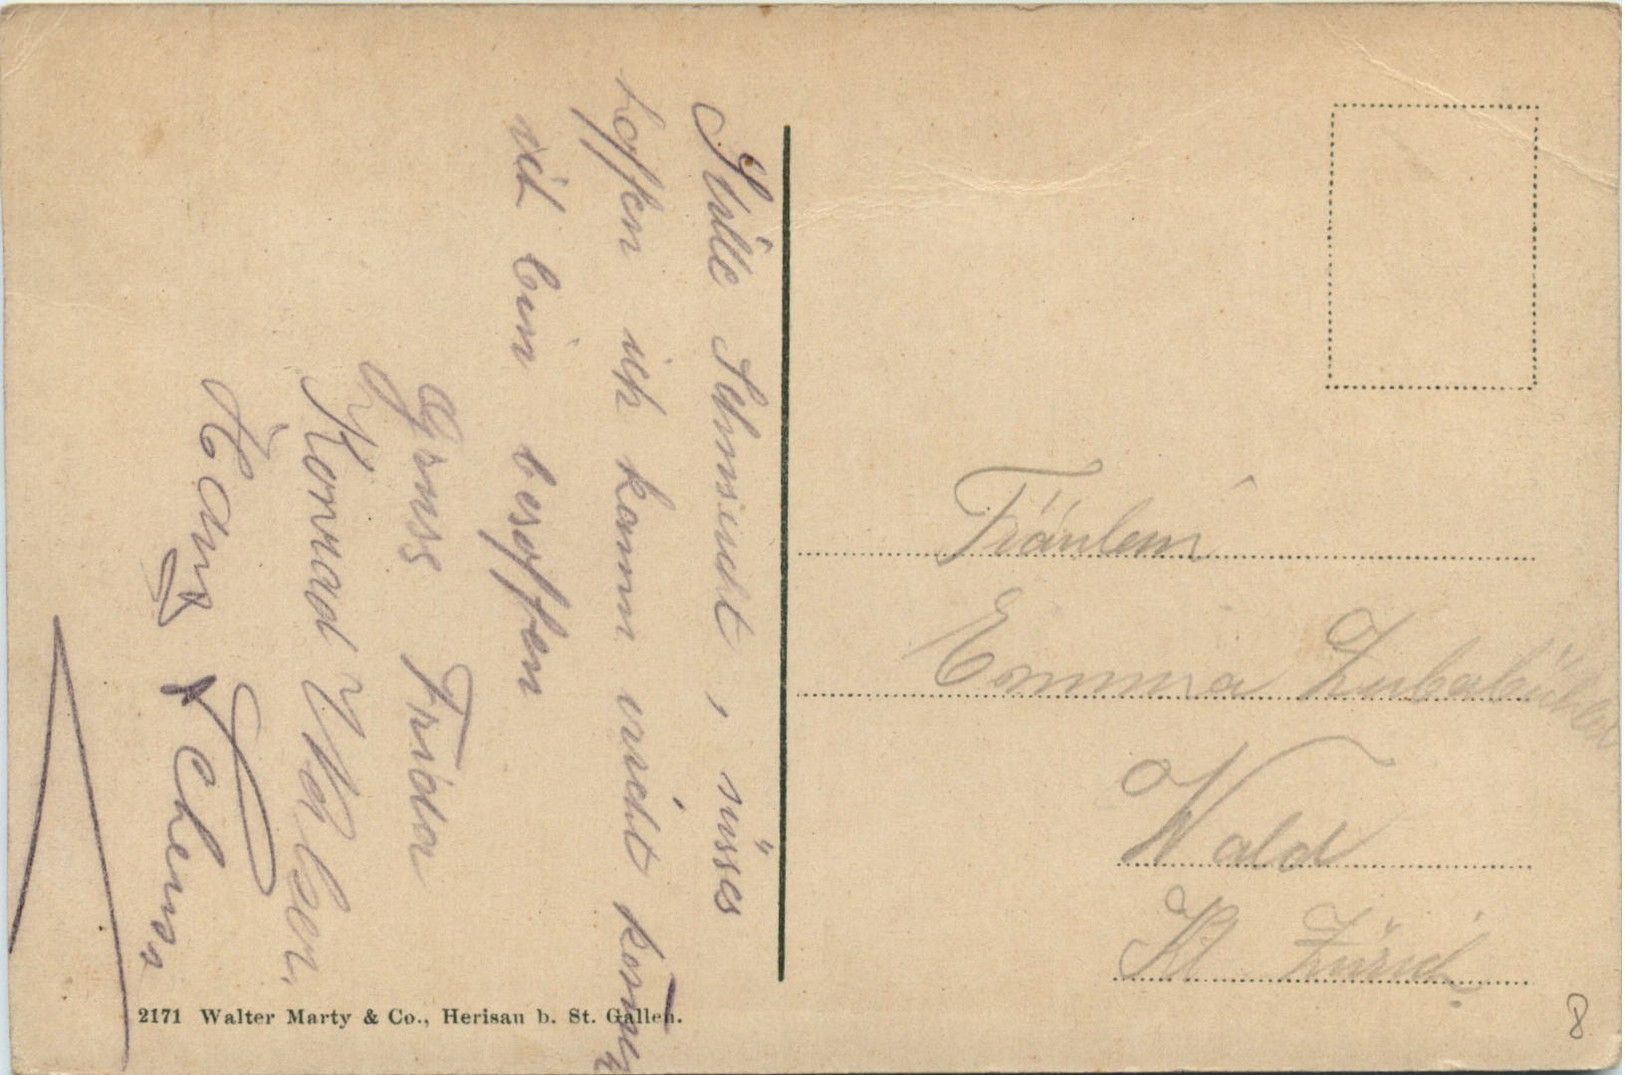 Stille Sehnsucht, süsses
hoffen ich kann nicht kommen
ich bin besoffen
Gruss Frida
Konrad
Hans
Fräulein
Emma
Wald
Kt. Zürich
8
2171 Walter Marty & Co., Herisau b. St. Gallen.